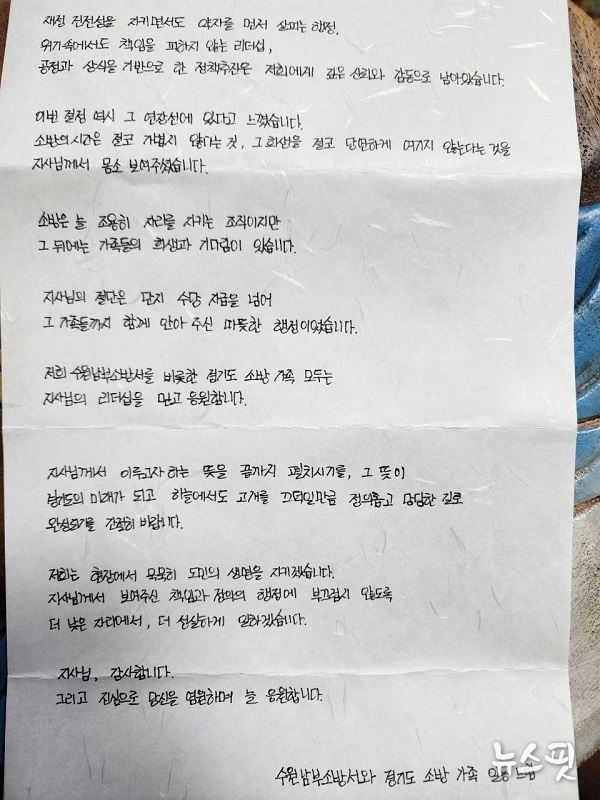 재정 건전성을 지키면서도 약자를 먼저 살피는 행정,
위기속에서도 책임을 피하지 않는 리더십,
공정과 상식을 기반으로 한 정책추진은 저희에게 깊은 신뢰와 감동으로 남아있습니다.
이번 결정 역시 그 연장선에 있다고 느꼈습니다.
소방의 시간은 결코 가볍지 않다는 것, 그 희생을 결코 당연하게 여기지 않는다는 것을
지사님께서 몸소 보여주셨습니다.
소방은 늘 조용히 자리를 지키는 조직이지만
그 뒤에는 가족들의 희생과 기다림이 있습니다.
지사님의 결단은 단지 수당 지급을 넘어
그 가족들까지 함께 안아 주신 따뜻한 행정이었습니다.
저희 수원남부소방서를 비롯한 경기도 소방 가족 모두는
지사님의 리더십을 믿고 응원합니다.
지사님께서 이루고자 하는 뜻을 끝까지 펼치시기를, 그 뜻이
경기도의 미래가 되고 하늘에서도 고개를 끄덕일만큼 정의롭고 당당한 길로
완성되기를 간절히 바랍니다.
저희는 현장에서 묵묵히 도민의 생명을 지키겠습니다.
지사님께서 보여주신 책임과 정의의 행정에 부끄럽지 않도록
더 낮은 자리에서, 더 성실하게 일하겠습니다.
지사님, 감사합니다.
그리고 진심으로 당신을 염원하며 늘 응원합니다.
수원남부소방서와 경기도 소방 가족 일동 드림
뉴스핏